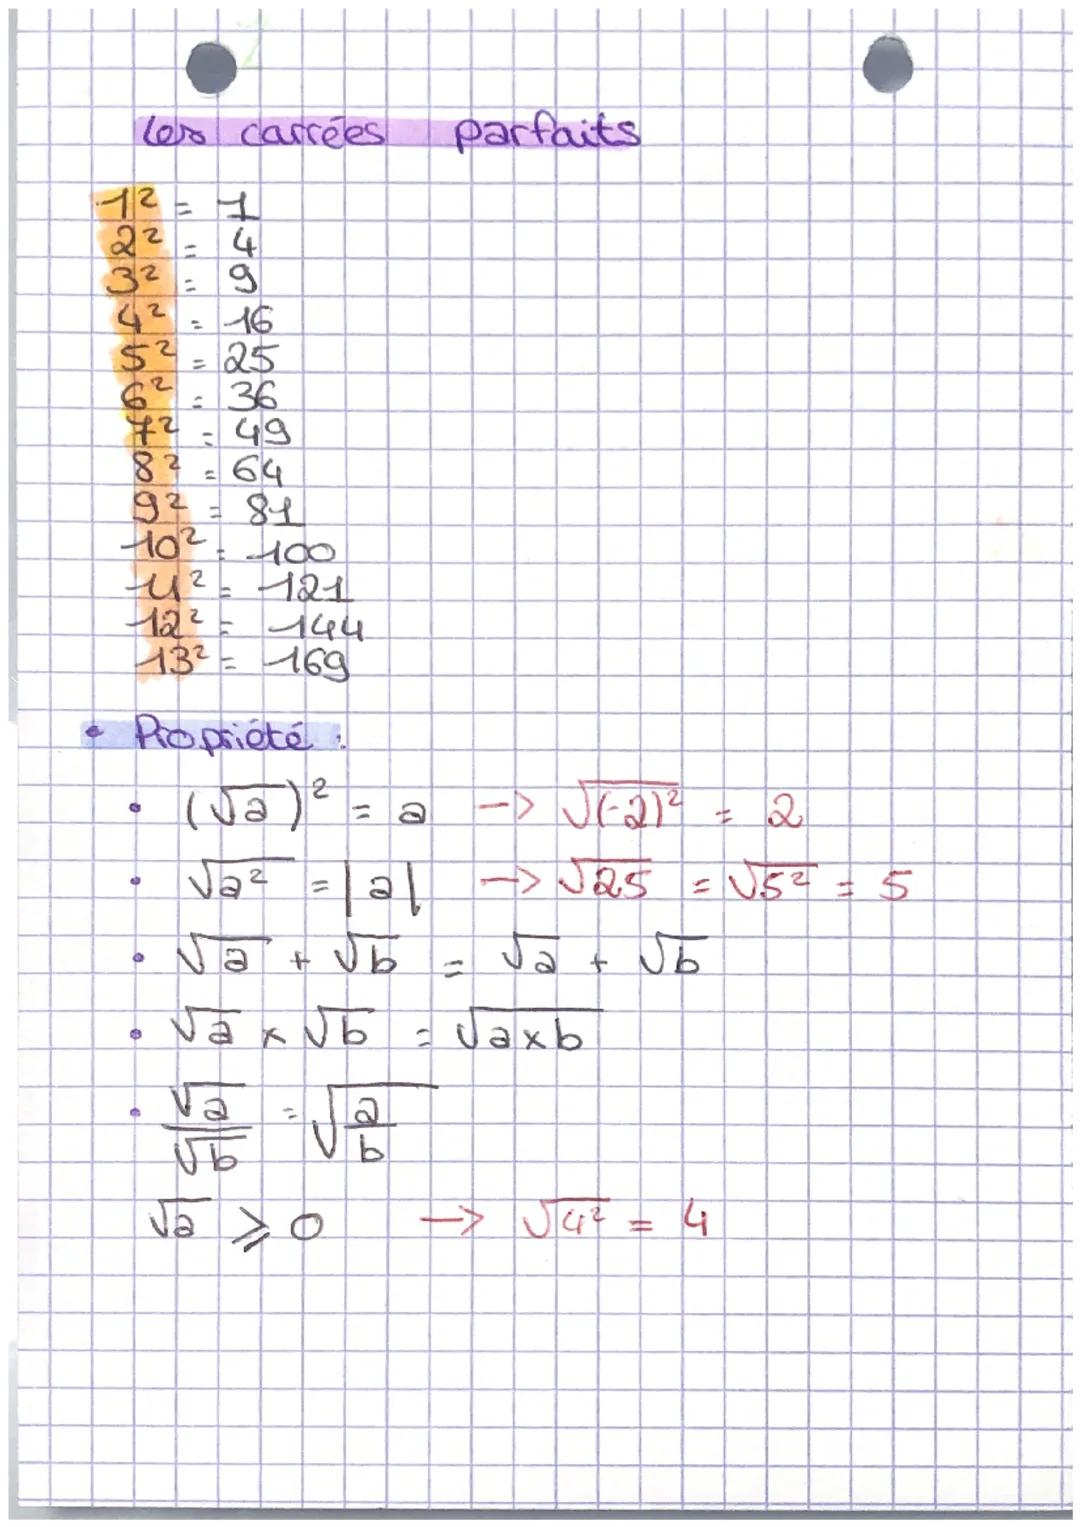 Les carrées parfaits
1² = 1
2² = 4
3² = 9
4² = 16
5² = 25
6² = 36
7² = 49
8² = 64
9² = 81
10² = 100
11² = 121
12² = 144
13² = 169
• Propriété :
• (√a)² = a -> √(-2)² = 2
• √a² = |a| -> √25 = √5² = 5
• √a + √b = √a + √b
• √a × √b = √a×b
• √a/√b = √(a/b)
√a ⩾ 0 -> √4² = 4